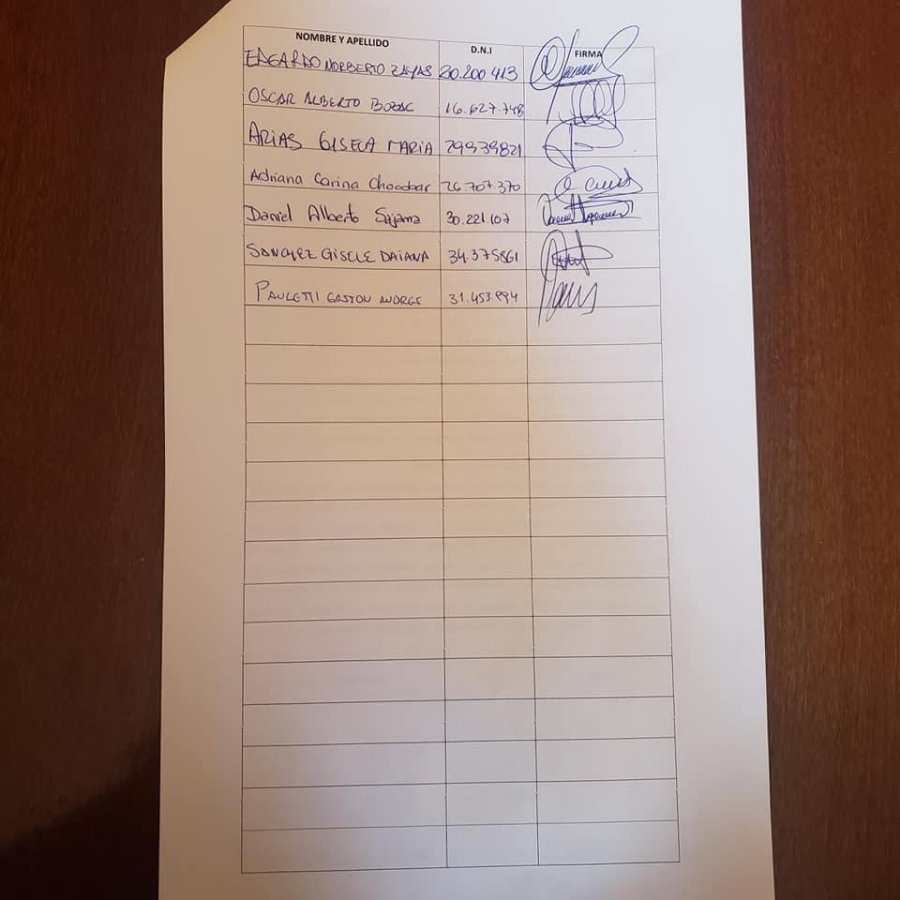 NOMBRE Y APELLIDO D.N.I FIRMA
EDGARDO NORBERTO ZAYAS 20.200.413
OSCAR ALBERTO 16.627.748
ARIAS GISELA MARIA 29939821
Adriana Carina Choodbar 26.707.370
Daniel Alberto Sajama 30.221.107
SANCHEZ GISELE DAIANA 34.375861
PAULETTI GASTON ANDRES 31.453.894